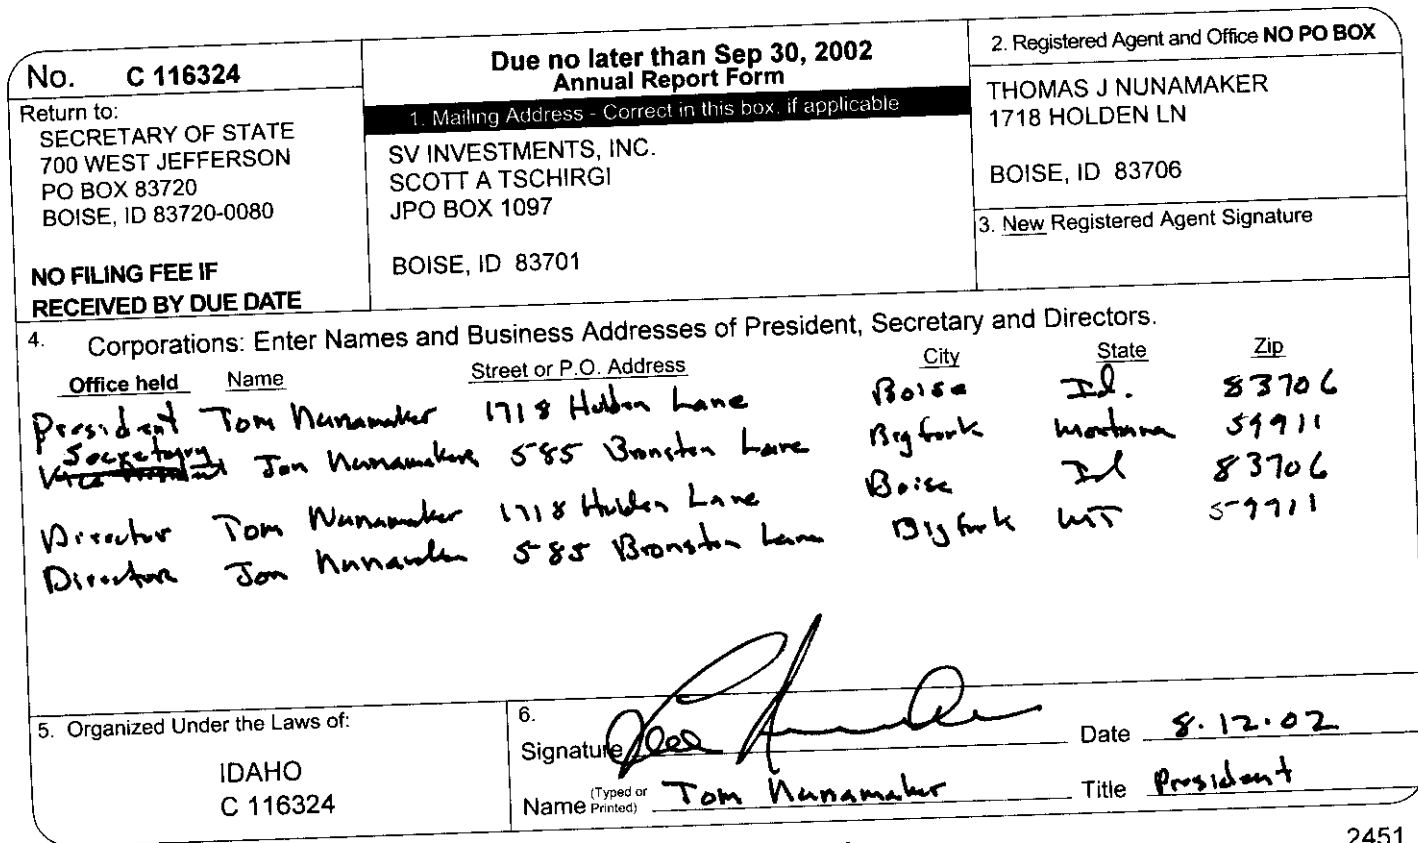 No. C 116324
Return to:
SECRETARY OF STATE
700 WEST JEFFERSON
PO BOX 83720
BOISE, ID 83720-0080
NO FILING FEE IF
RECEIVED BY DUE DATE
Due no later than Sep 30, 2002
Annual Report Form
1. Mailing Address - Correct in this box, if applicable
SV INVESTMENTS, INC.
SCOTT A TSCHIRGI
JPO BOX 1097
BOISE, ID 83701
2. Registered Agent and Office NO PO BOX
THOMAS J NUNAMAKER
1718 HOLDEN LN
BOISE, ID 83706
3. New Registered Agent Signature
4. Corporations: Enter Names and Business Addresses of President, Secretary and Directors.
Office held Name Street or P.O. Address City State Zip
President Tom Nunamaker 1718 Holden Lane Boise Id. 83706
Secretary
Vice President Jon Nunamaker 585 Bronston Lane Bigfork Montana 59911
Director Tom Nunamaker 1718 Holden Lane Boise Id 83706
Director Jon Nunamaker 585 Bronston Lane Bigfork MT 59911
5. Organized Under the Laws of:
IDAHO
C 116324
6.
Signature Date 8.12.02
Name (Typed or Printed) Tom Nunamaker Title President
2451